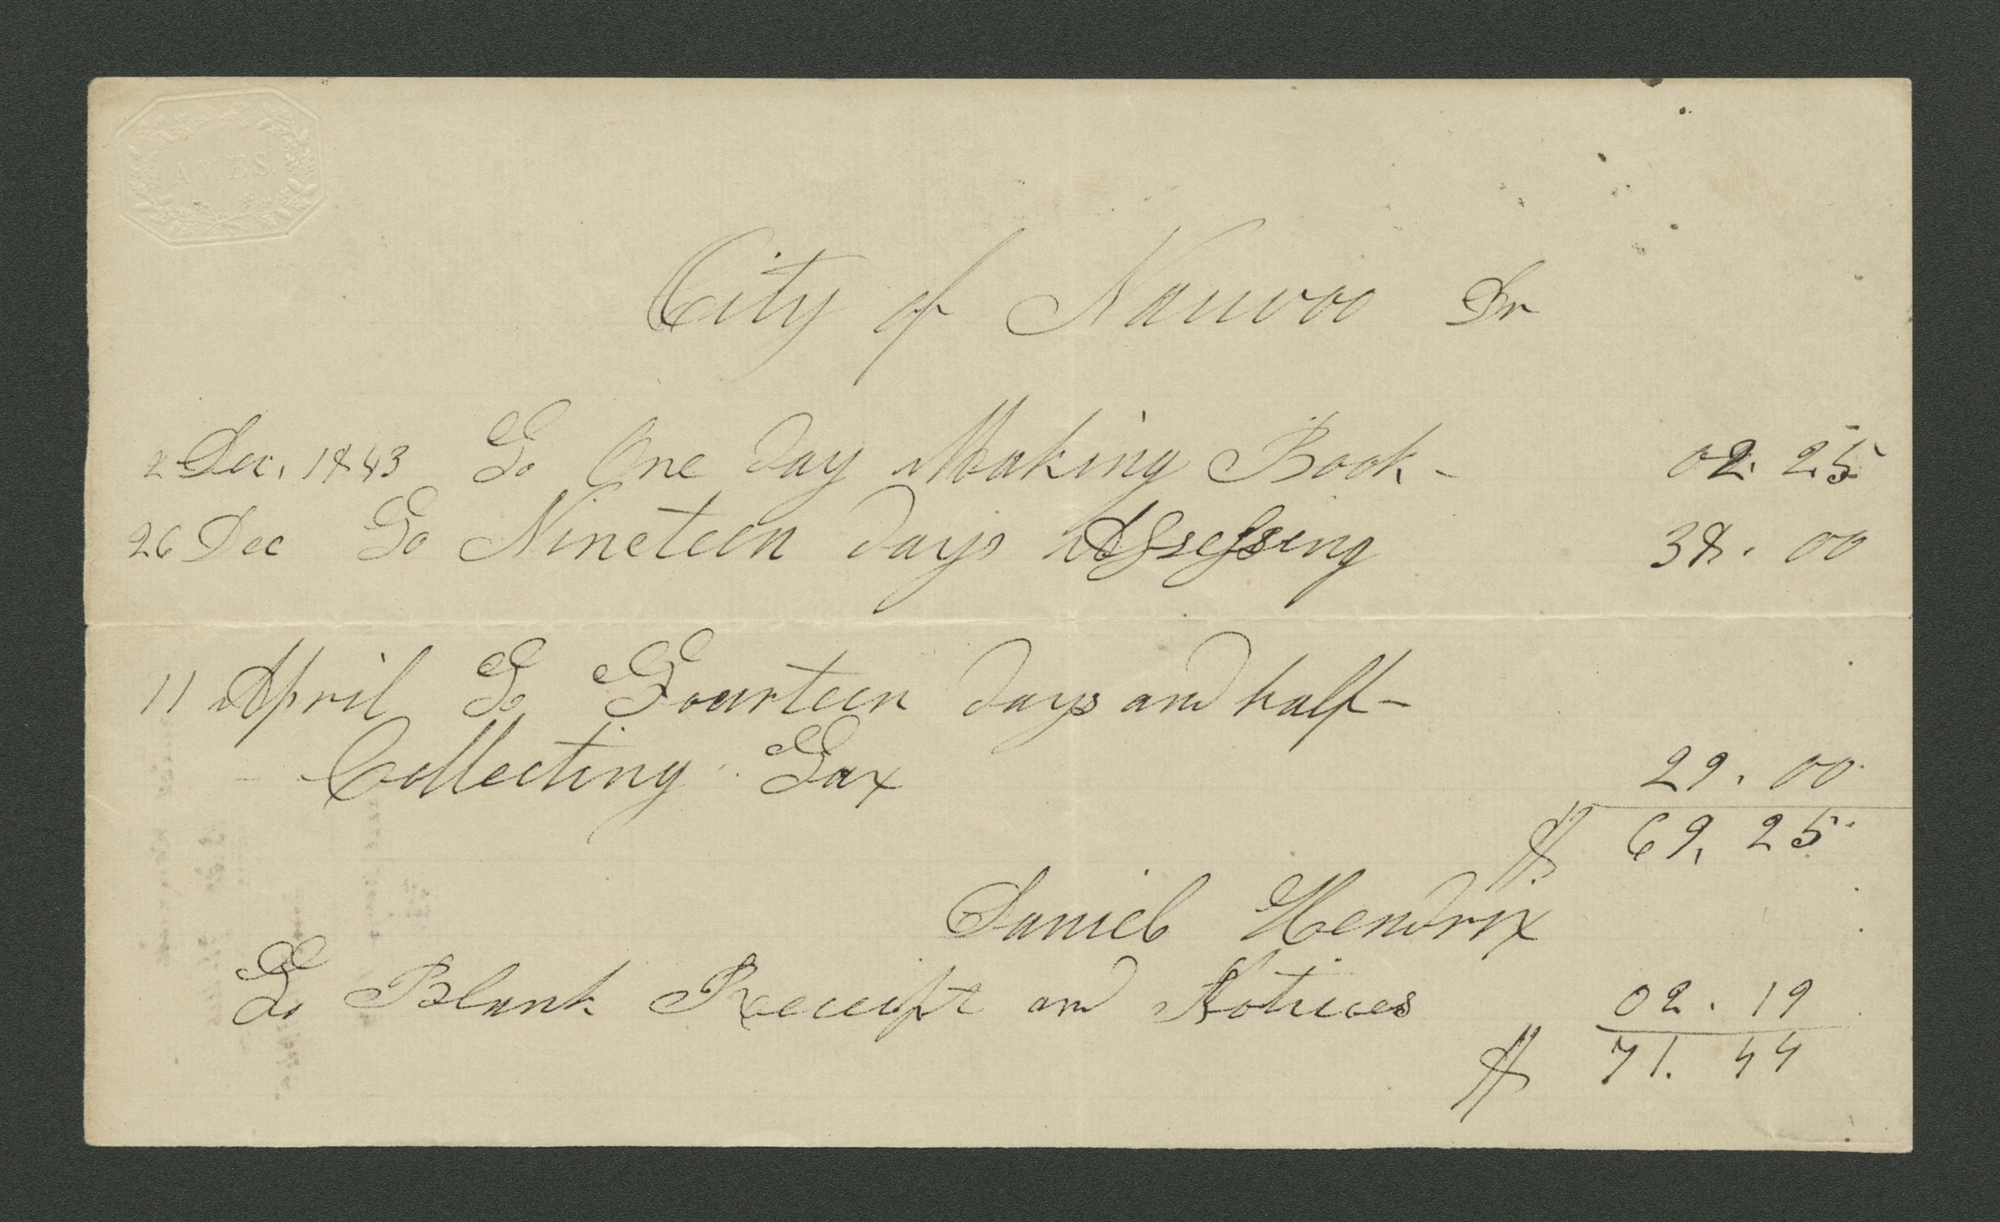 City of Nauvoo Dr
2 Dec. 1843 To One day Making Book - 02. 25
26 Dec To Nineteen days Assessing 38. 00
11 April To Fourteen days and half -
Collecting Tax 29. 00
$ 69. 25
Daniel Hendrix
To Blank Receipt and Notices 02. 19
$ 71. 44